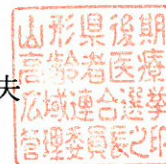 山形県後期
高齢者医療
広域連合選挙
管理委員長之印
夫